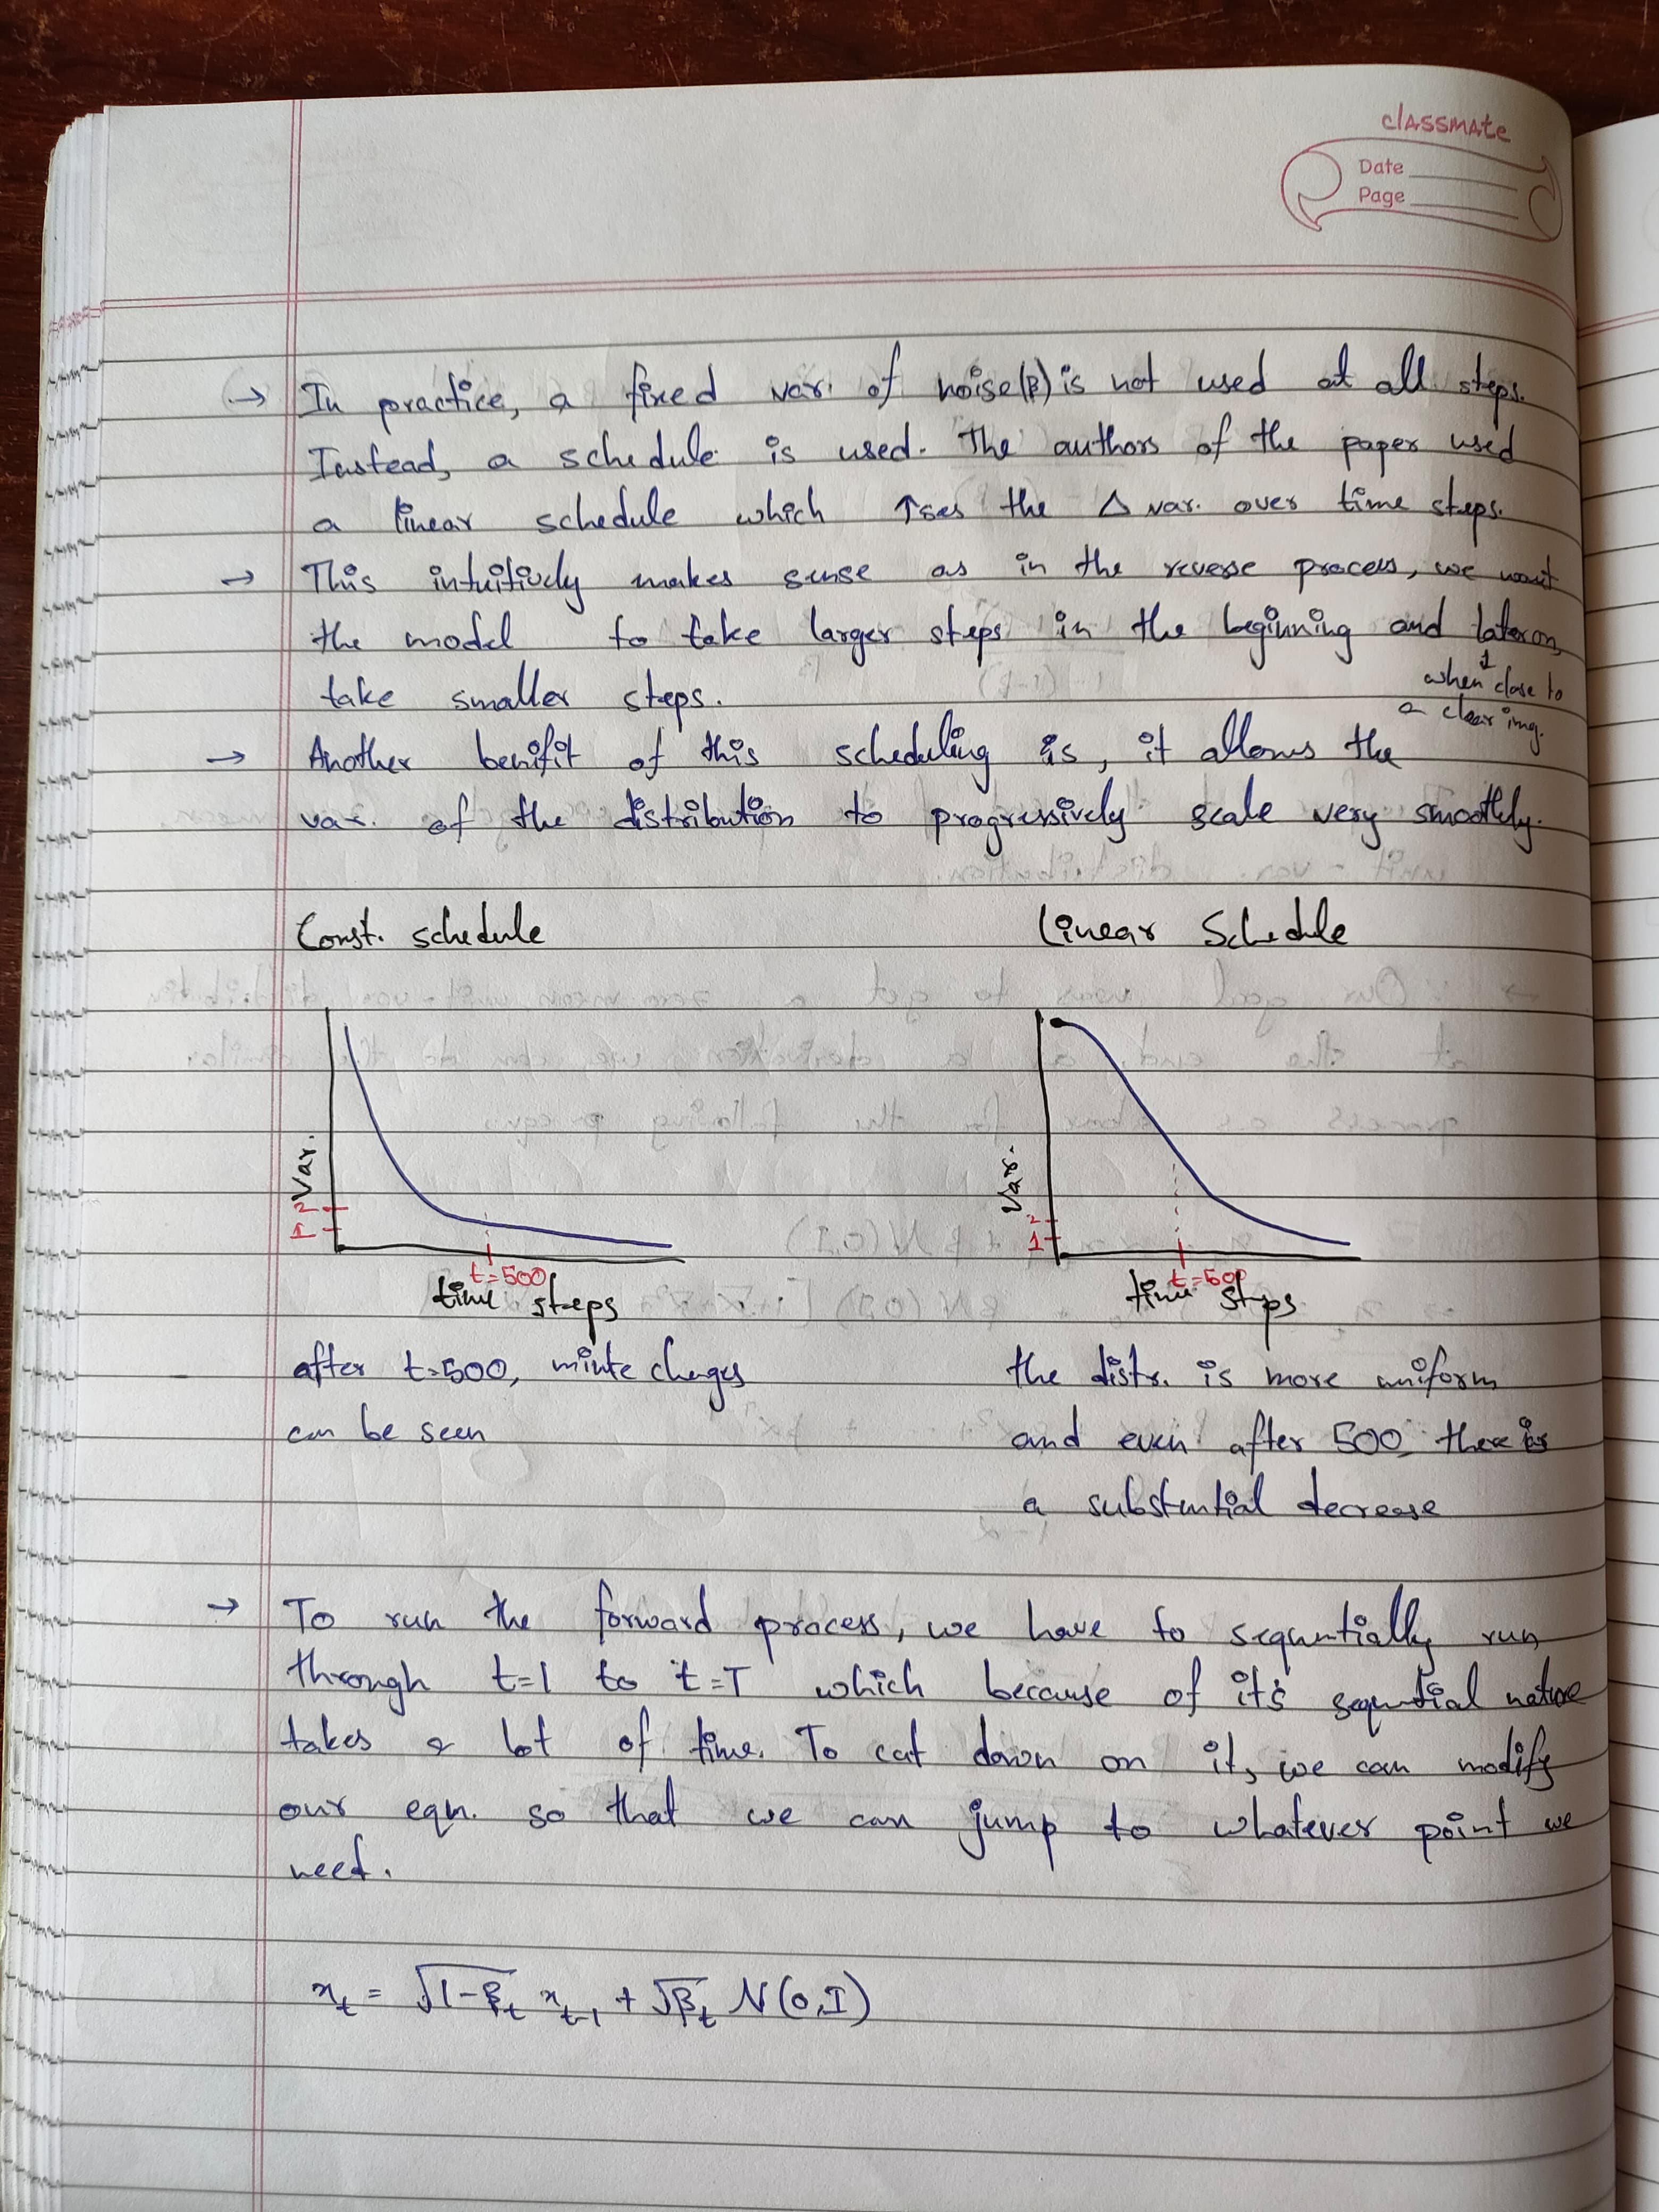 classmate
Date
Page
→ In practice, a fixed var. of noise(β) is not used at all steps.
Instead, a schedule is used. The authors of the paper used
a linear schedule which ↑ses the Δ var. over time steps.
→ This intuitively makes sense as in the reverse process, we want
the model to take larger steps in the beginning and later on,
take smaller steps.
when close to
a clear img.
→ Another benifit of this scheduling is, it allows the
var. of the distribution to progressively scale very smoothly.
Const. schedule
Linear Schedule
Var.
2
1
t=500
time steps
Var.
2
1
t=500
time steps
after t=500, minte changes
can be seen
the distr. is more uniform
and even after 500 there is
a substantial decrease
→ To run the forward process, we have to sequentially run
through t=1 to t=T which because of it's sequential nature
takes a lot of time. To cut down on it, we can modify
our eqn. so that we can jump to whatever point we
need.
x_t = √(1-β_t) x_{t-1} + √β_t N(0,I)